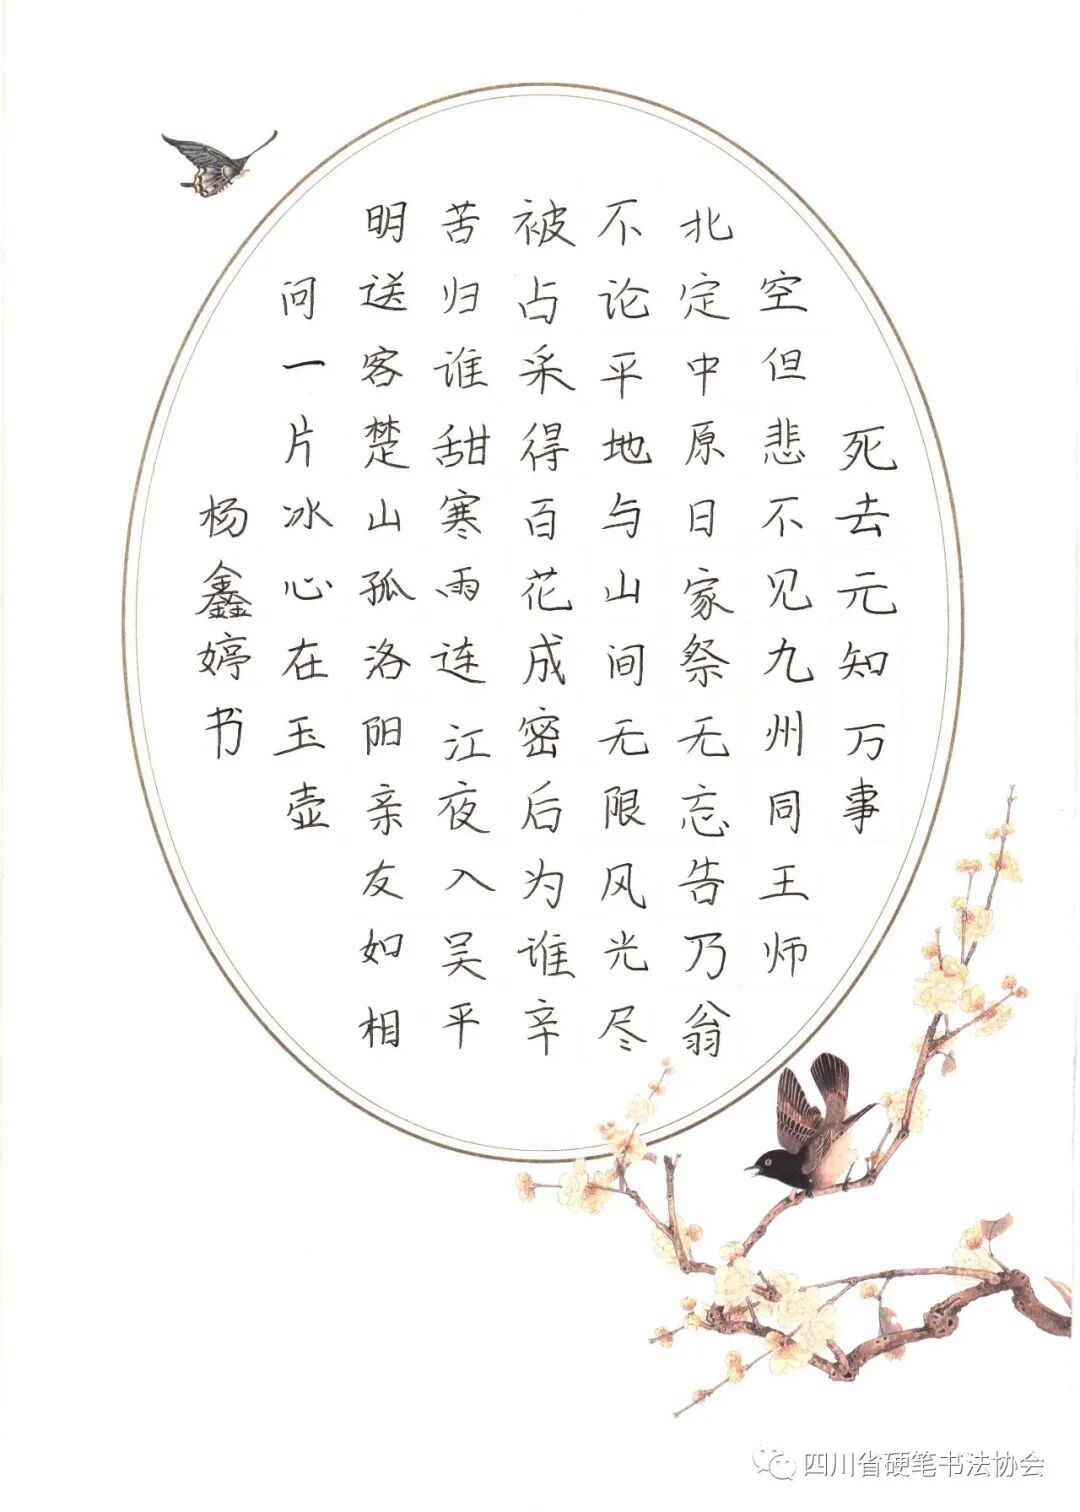 死去元知万事
空但悲不见九州同王师
北定中原日家祭无忘告乃翁
不论平地与山间无限风光尽
被占采得百花成密后为谁辛
苦归谁甜寒雨连江夜入吴平
明送客楚山孤洛阳亲友如相
问一片冰心在玉壶
杨鑫婷书
四川省硬笔书法协会